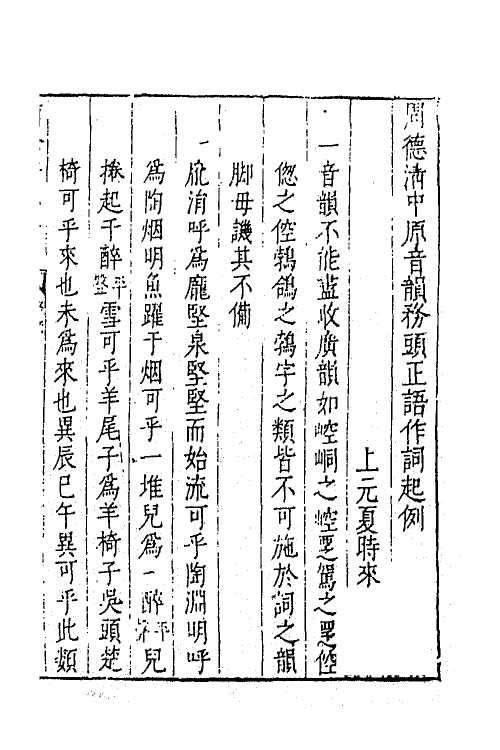 周德清中原音韻務頭正語作詞起例
上元夏時來
一音韻不能盡收廣韻如崆峒之崆覂駕之覂倥
傯之倥鵓鴿之鵓字之類皆不可施於詞之韻
脚毋譏其不備
一龐涓呼爲龐堅泉堅堅而始流可乎陶淵明呼
爲陶烟明魚躍于烟可乎一堆兒爲一醉平聲兒
捲起千醉平聲雪可乎羊尾子爲羊椅子吳頭楚
椅可乎來也未爲來也異辰巳午異可乎此類